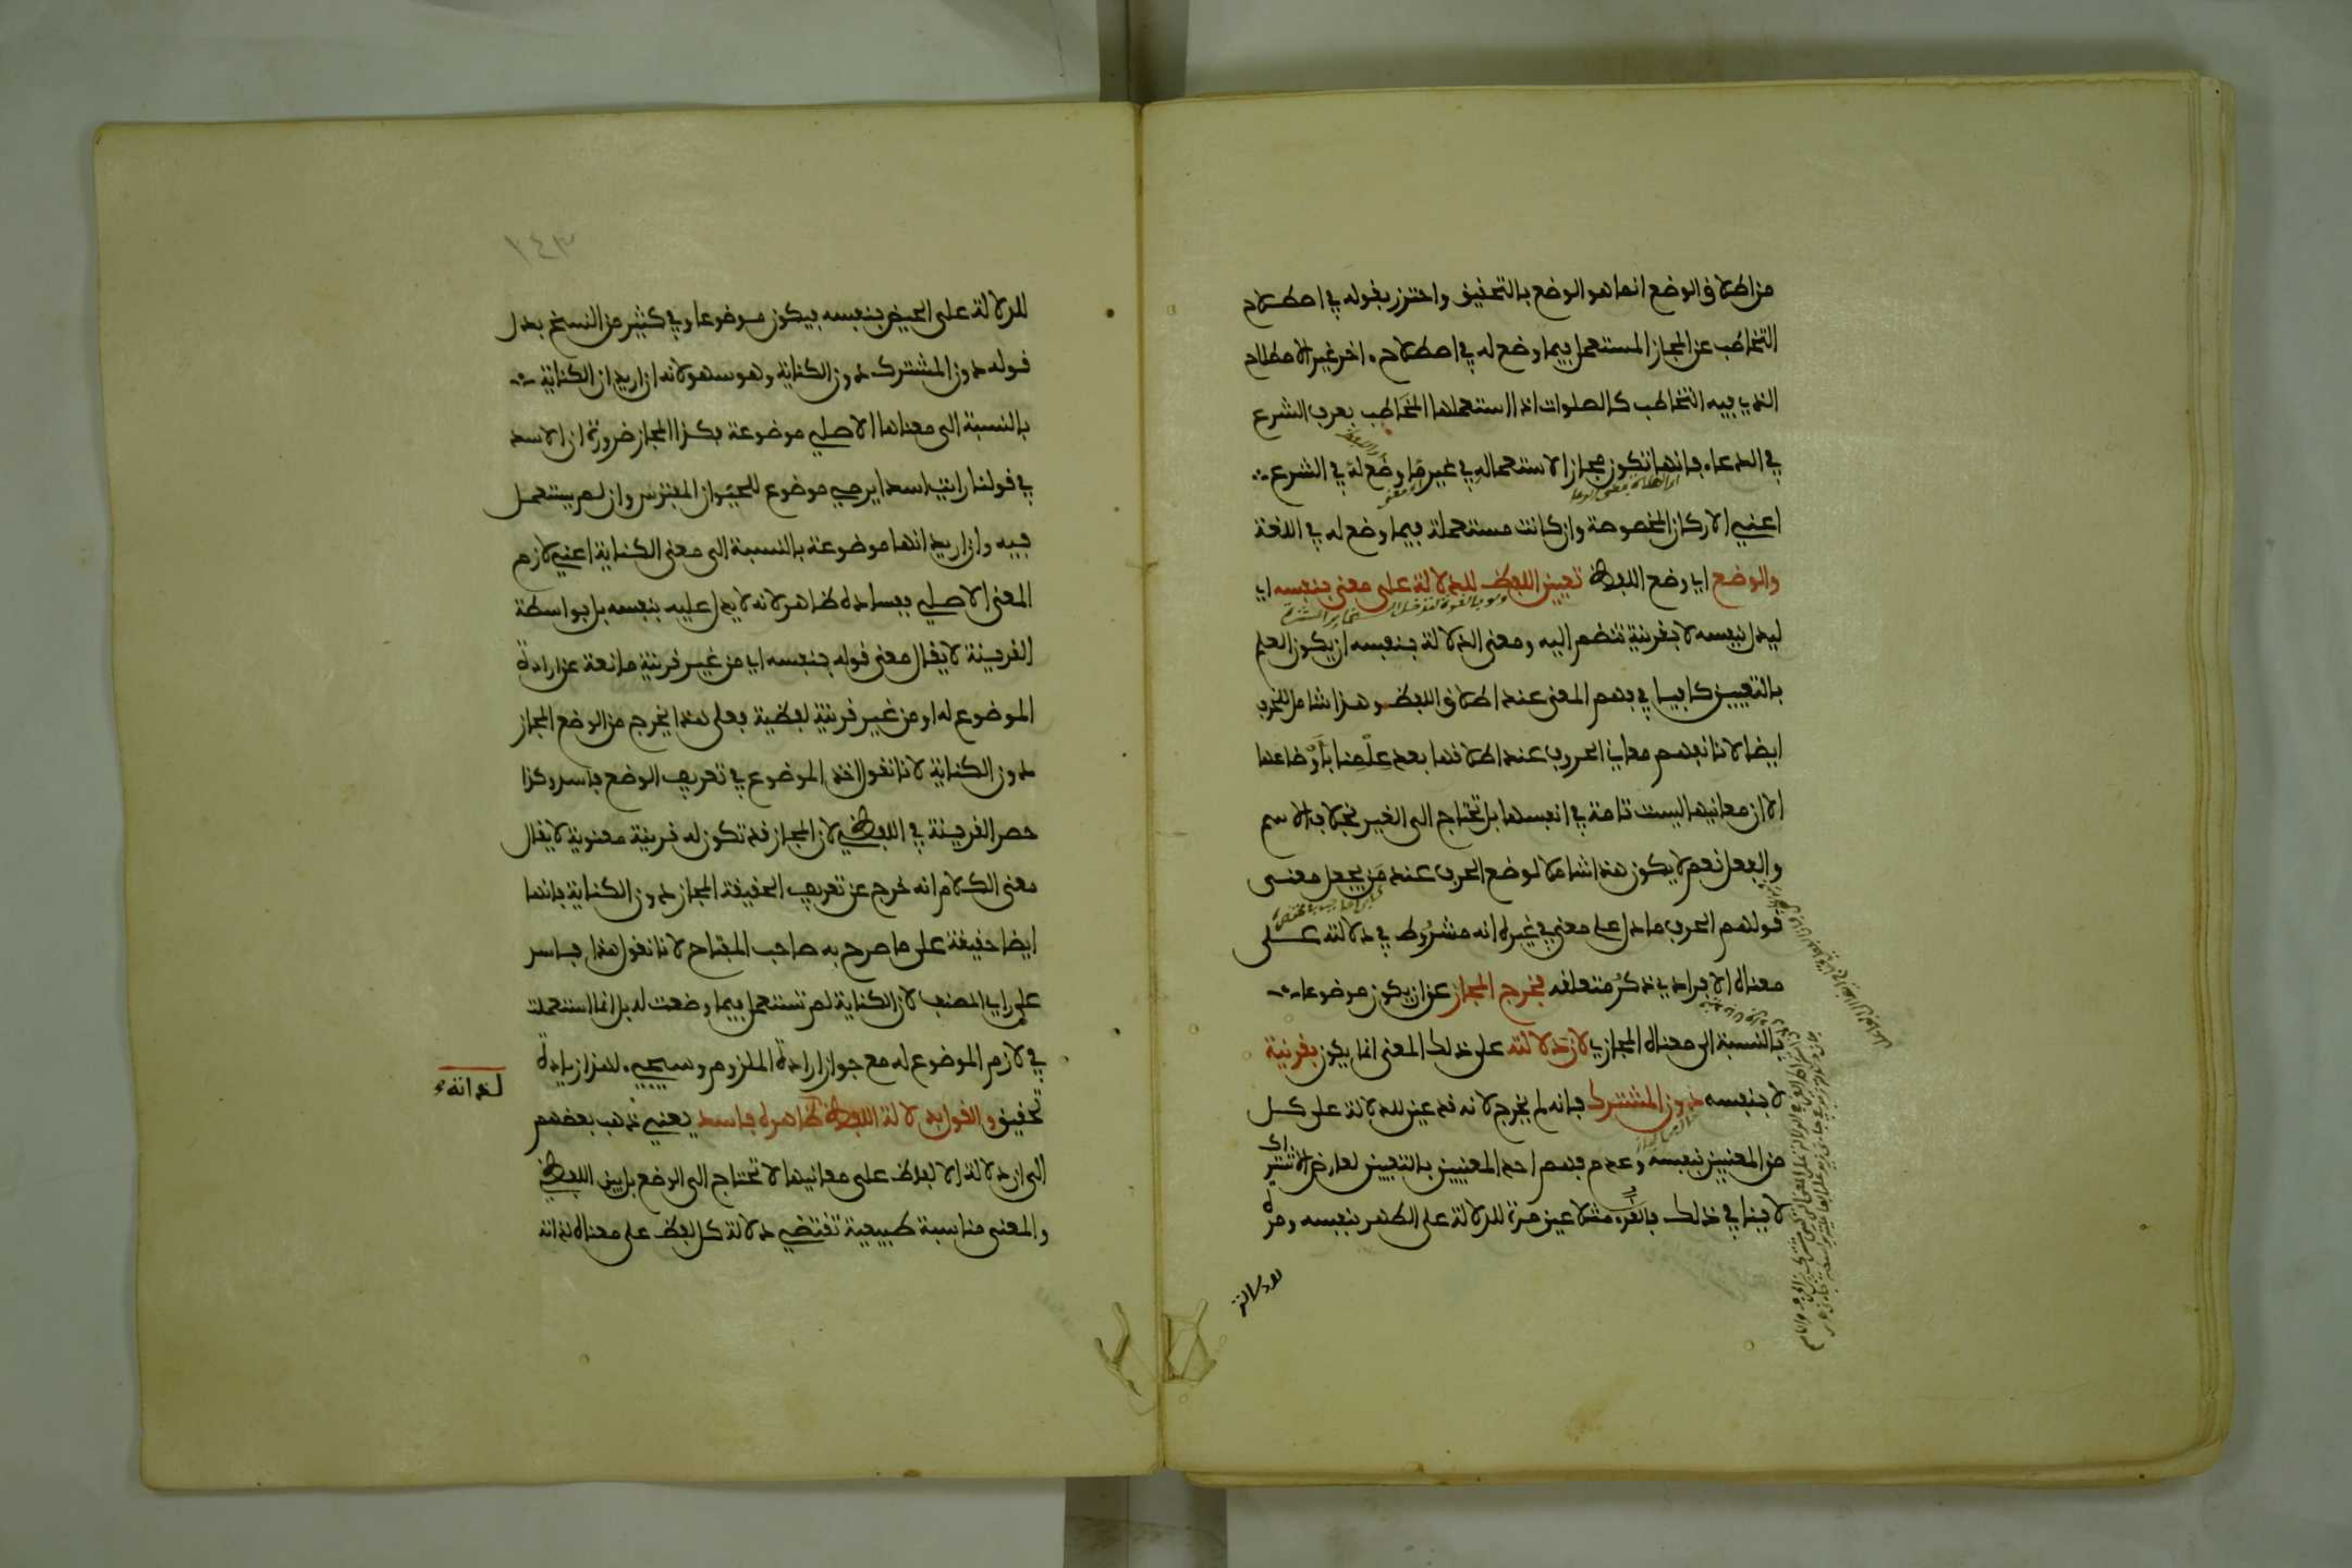 من اطلاق الوضع انما هو الوضع بالتحقيق واحترز بقوله في اصطلاح
التخاطب عن المجاز المستعمل فيما وضع له في اصطلاح اخر غير الاصطلاح
الذي فيه التخاطب كالصلوات اذا استعملها المخاطب بعرف الشرع
في الدعاء فانها تكون مجازا لاستعماله في غير ما وضع له في الشرع
اعني الاركان المخصوصة وان كانت مستعملة فيما وضع له في اللغة
والوضع اي وضع اللفظ تعيين اللفظ للدلالة على معنى بنفسه اي
ليدل بنفسه لا بقرينة تنضم اليه ومعنى الدلالة بنفسه ان يكون العلم
بالتعيين كافيا في فهم المعنى عند اطلاق اللفظ وهذا شامل للحرف
ايضا لانا نفهم معاني الحروف عند اطلاقها بعد علمنا باوضاعها
الا ان معانيها ليست تامة في انفسها بل تحتاج الى الغير بخلاف الاسم
والفعل نعم لا يكون هذا شاملا لوضع الحرف عند من يجعل معنى
قولهم الحرف ما دل على معنى في غيره انه مشروط في دلالته على
معناه الافرادي ذكر متعلقه فخرج المجاز عن ان يكون موضوعا
بالنسبة الى معناه المجازي لان دلالته على ذلك المعنى انما يكون بقرينة
لا بنفسه دون المشترك فانه لم يخرج لانه قد عين للدلالة على كل
من المعنيين بنفسه وعدم فهم احد المعنيين بالتعيين لعارض الاشتراك
لا ينافي ذلك فالقرء مثلا عين مرة للدلالة على الطهر بنفسه ومرة
للدلالة
١٤٣
للدلالة على الحيض بنفسه فيكون موضوعا وفي كثير من النسخ بدل
قوله دون المشترك دون الكناية وهو سهو لانه ان اريد ان الكناية
بالنسبة الى معناها الاصلي موضوعة فكذا المجاز ضرورة ان الاسد
في قولنا رايت اسدا يرمي موضوع للحيوان المفترس وان لم يستعمل
فيه وان اريد انها موضوعة بالنسبة الى معنى الكناية اعني لازم
المعنى الاصلي ففساده ظاهر لانه لا يدل عليه بنفسه بل بواسطة
القرينة لا يقال معنى قوله بنفسه اي من غير قرينة مانعة عن ارادة
الموضوع له او من غير قرينة لفظية فعلى هذا يخرج من الوضع المجاز
دون الكناية لانا نقول اخذ الموضوع في تعريف الوضع فاسد وكذا
حصر القرينة في اللفظي لان المجاز قد تكون له قرينة معنوية لا يقال
معنى الكلام انه خرج عن تعريف الحقيقة المجاز دون الكناية فانها
ايضا حقيقة على ما صرح به صاحب المفتاح لانا نقول هذا فاسد
على راي المصنف لان الكناية لم تستعمل فيما وضعت له بل انما استعملت
في لازم الموضوع له مع جواز ارادة الملزوم وسيجيء لهذا زيادة
تحقيق والقول بدلالة اللفظ لذاته ظاهره فاسد يعني ذهب بعضهم
الى ان دلالة الالفاظ على معانيها لا تحتاج الى الوضع بل بين اللفظ
والمعنى مناسبة طبيعية تقتضي دلالة كل لفظ على معناه لذاته
لذاته